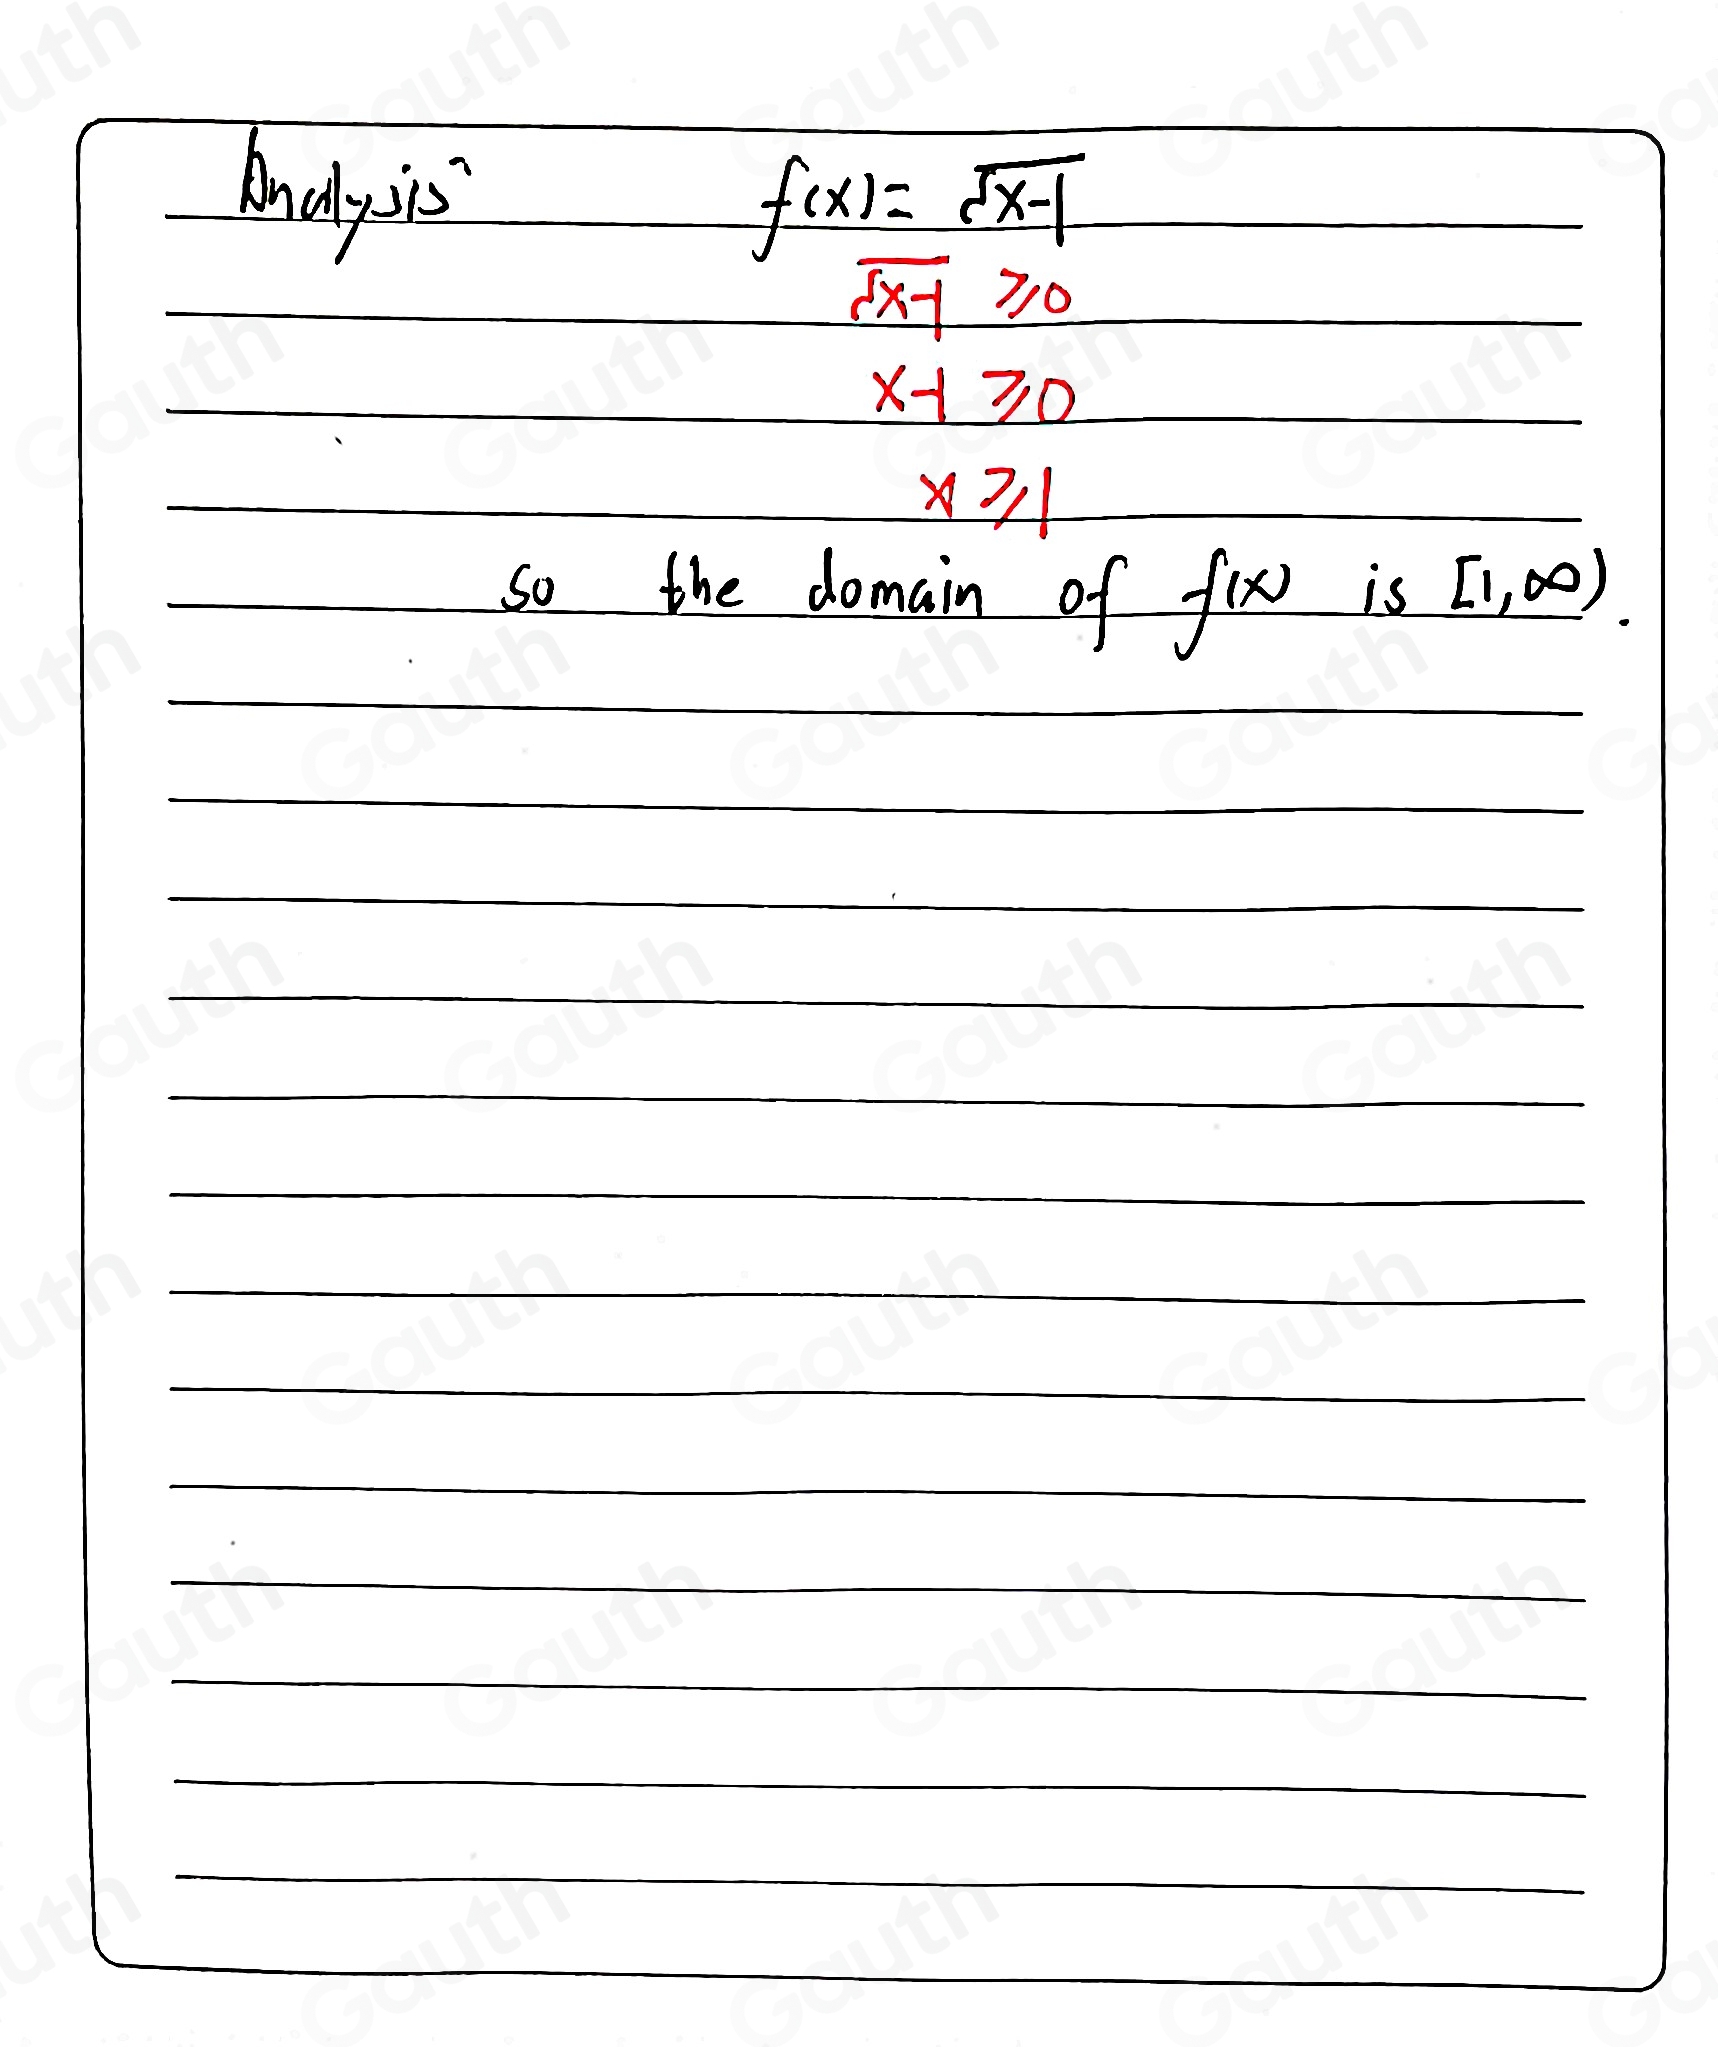 Analysis
f(x) = √x-1
√x-1 ⩾0
x-1 ⩾0
x ⩾1
so the domain of f(x) is [1,∞).